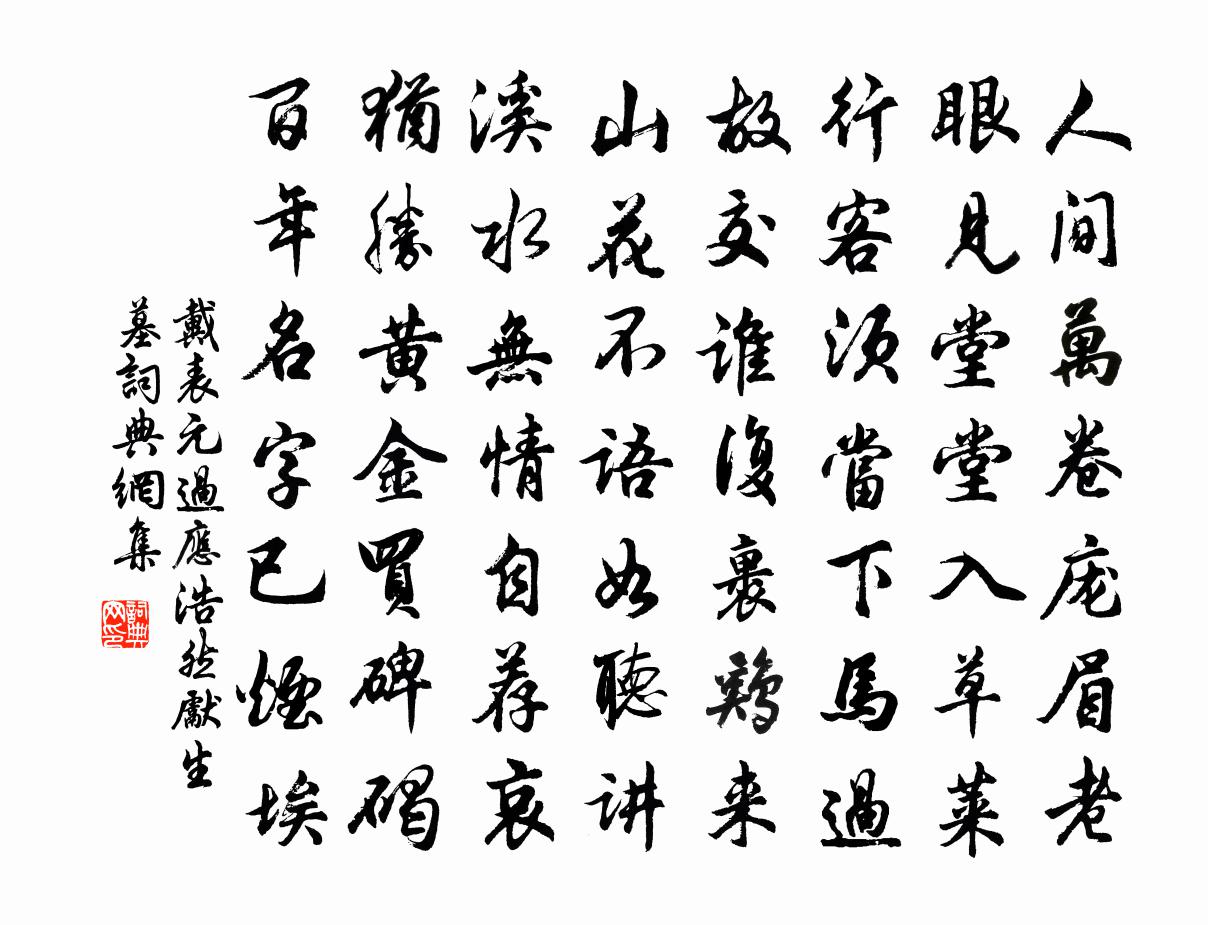 人间萬卷庞眉老
眼見堂堂入草萊
行客须當下馬過
故交谁復裹鷄来
山花不语如聽讲
溪水無情自荐哀
猶勝黄金買碑碣
百年名字已煙埃
戴表元過應浩然獻生
墓詞典網集
詞典
网印